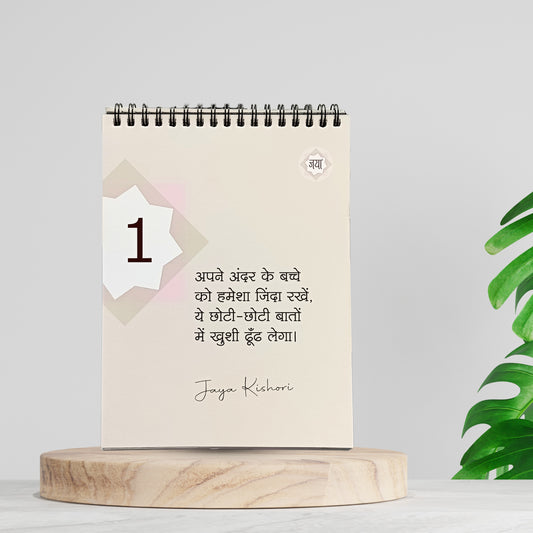 जया
1
अपने अंदर के बच्चे
को हमेशा जिंदा रखें,
ये छोटी-छोटी बातों
में खुशी ढूँढ लेगा।
Jaya Kishori